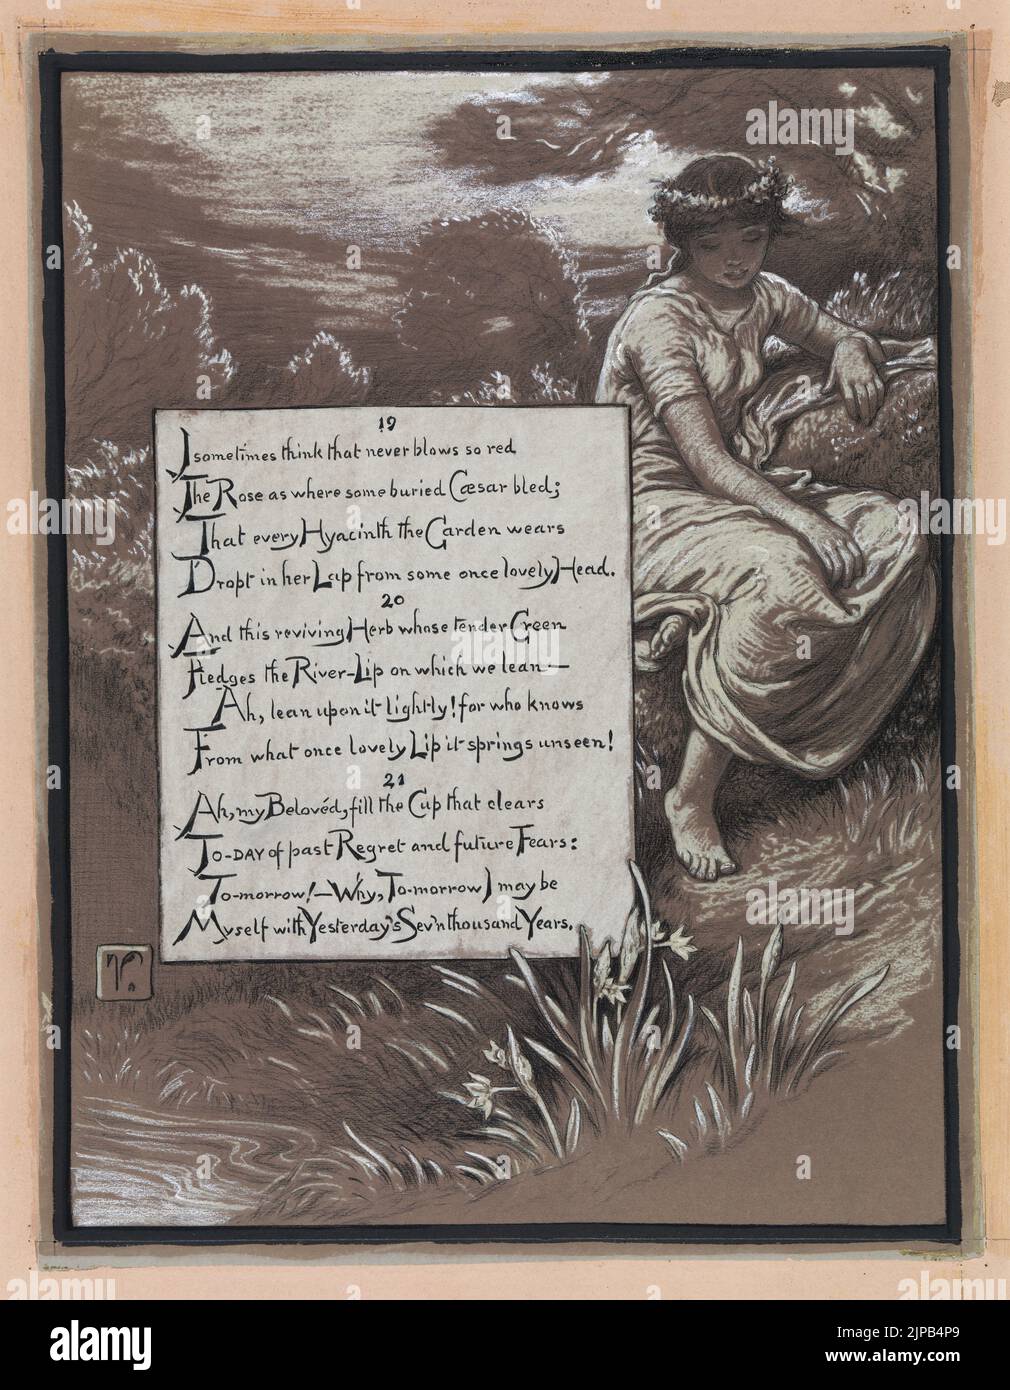 19
I sometimes think that never blows so red
The Rose as where some buried Cæsar bled;
That every Hyacinth the Garden wears
Dropt in her Lap from some once lovely Head.
20
And this reviving Herb whose tender Green
Fledges the River-Lip on which we lean—
Ah, lean upon it lightly! for who knows
From what once lovely Lip it springs unseen!
21
Ah, my Belovéd, fill the Cup that clears
TO-DAY of past Regret and future Fears:
To-morrow!—Why, To-morrow I may be
Myself with Yesterday's Sev'n thousand Years.
alamy
Image ID: 2JPB4P9
www.alamy.com